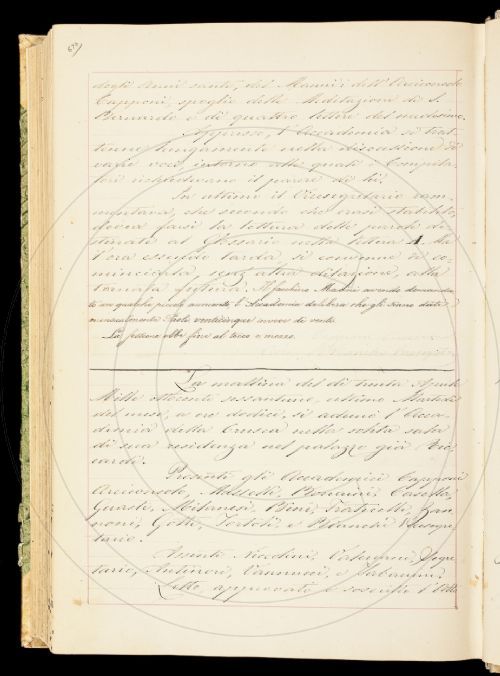 degli Anni santi, del Manni; dell' Arciconsolo
Capponi, spoglio delle Meditazioni di S.
Bernardo e di quattro lettere del medesimo.
Appresso, l'Accademia si trat-
tiene lungamente nella discussione di
varie voci, intorno alle quali i Compila-
tori richiedevano il parere di lei.
In ultimo il Vicesegretario ram-
mentava, che secondo che erasi stabilito,
dovea farsi la lettura delle parole de-
stinate al Glossario nella lettera A. Ma
l'ora essendo tarda si convenne di co-
minciarla, senz'altra dilazione, alla
tornata futura. Il
avendo domanda-
to un qualche
l'Accademia delibera che gli siano date
mensualmente Paoli venticinque invece di venti.
La sessione ebbe fine al tocco e mezzo.
La mattina del dì trenta Aprile
Mille ottocento sessantuno, ultimo Martedì
del mese, a ore dodici, si adunò l'Acca-
demia della Crusca nella solita sala
di sua residenza nel palazzo già Ric-
cardi.
Presenti gli Accademici Capponi
Arciconsolo, Casella,
Guasti, Milanesi, Bini, Fraticelli, Zan-
noni, Gotti, Tortoli, e Bianchi Vicesegre-
tario.
Assenti Niccolini, Segre-
tario, Vannucci, e Barbarini.
Letto, approvato e l'Atto